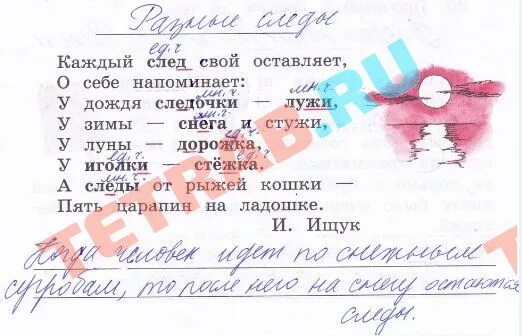 Разные следы
ед.ч
Каждый след свой оставляет,
О себе напоминает:
мн.ч. мн.ч.
У дождя следочки – лужи,
мн.ч.
У зимы – снега и стужи,
ед.ч.
У луны – дорожка,
ед.ч. ед.ч
У иголки – стёжка.
мн.ч.
А следы от рыжей кошки –
Пять царапин на ладошке.
И. Ищук
Когда человек идет по снежным
сугробам, то после него на снегу остаются
следы.
TETRAB.RU